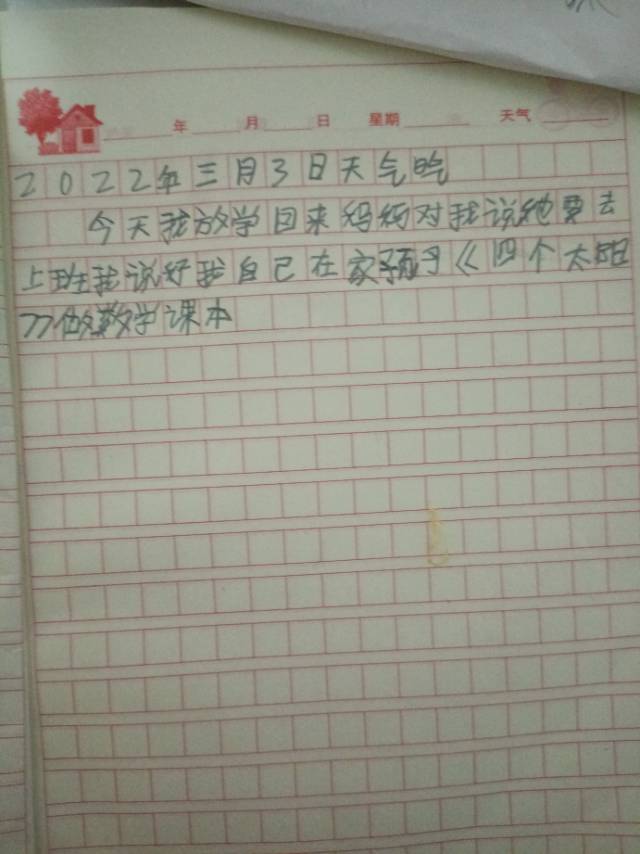 年 月 日 星期 天气
2022年三月3日天气吃
今天我放学回来妈妈对我说她要去
上班我说好我自己在家预习《四个太阳
》做数学课本